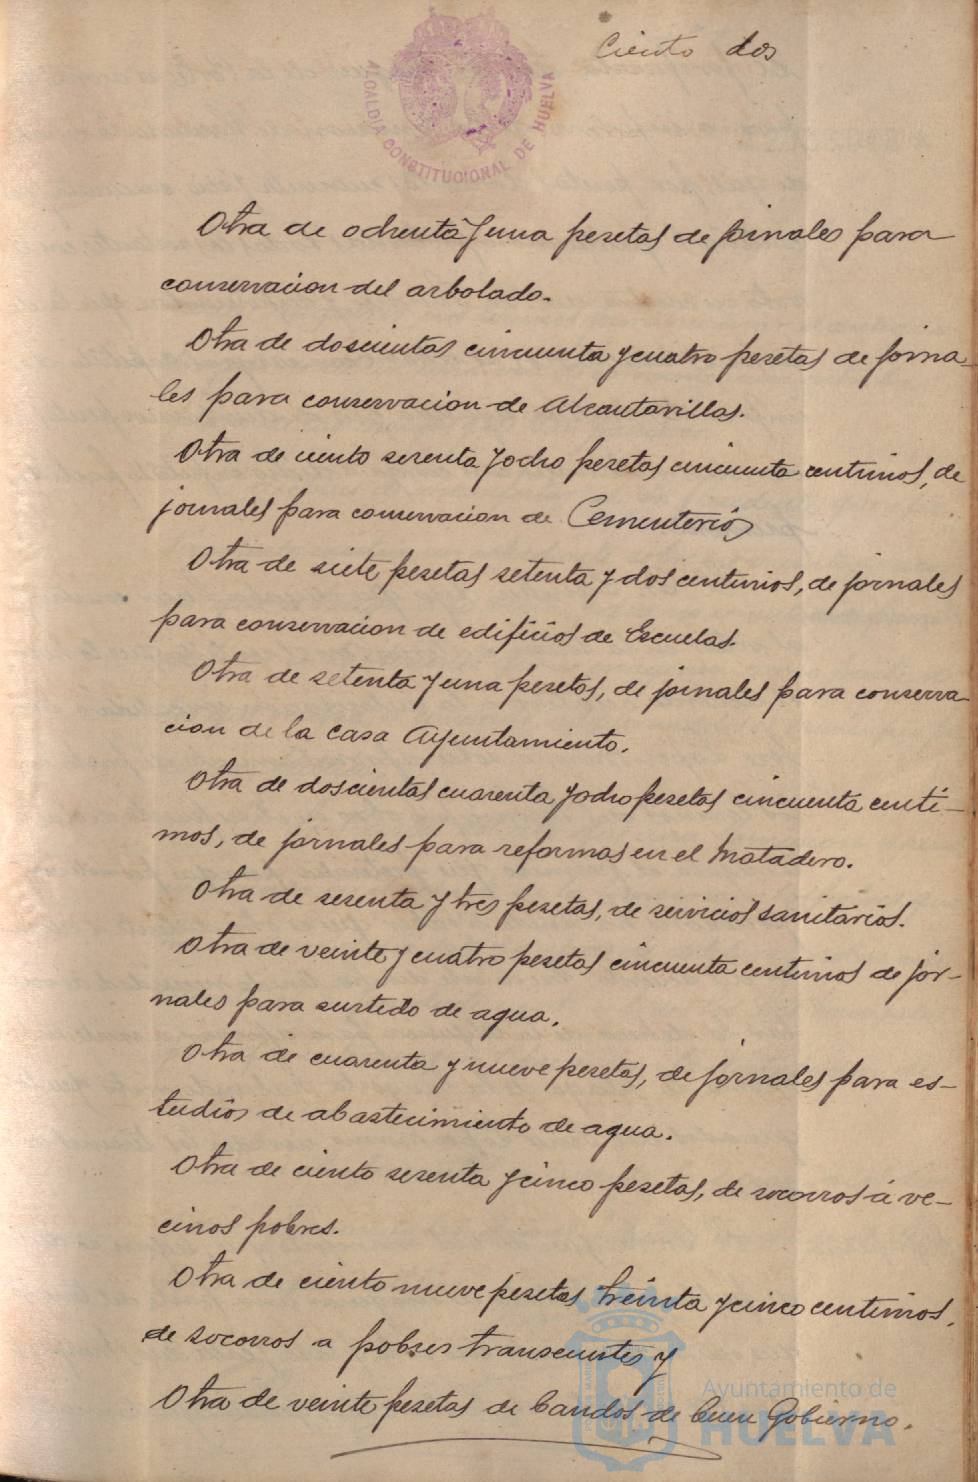 Ciento dos
ALCALDIA CONSTITUCIONAL DE HUELVA
Otra de ochenta y una pesetas de jornales para
conservacion del arbolado.
Otra de doscientas cincuenta y cuatro pesetas de jorna-
les para conservacion de Alcantarillas.
Otra de ciento sesenta y ocho pesetas cincuenta centimos, de
jornales para conservacion de Cementerios
Otra de siete pesetas setenta y dos centimos, de jornales
para conservacion de edificios de Escuelas.
Otra de setenta y una pesetas, de jornales para conserva-
cion de la Casa Ayuntamiento.
Otra de doscientas cuarenta y ocho pesetas cincuenta centi-
mos, de jornales para reformas en el Matadero.
Otra de sesenta y tres pesetas, de servicios sanitarios.
Otra de veinte y cuatro pesetas cincuenta centimos de jor-
nales para surtido de agua.
Otra de cuarenta y nueve pesetas, de jornales para es-
tudios de abastecimiento de agua.
Otra de ciento sesenta y cinco pesetas, de socorros á ve-
cinos pobres.
Otra de ciento nueve pesetas treinta y cinco centimos,
de socorros a pobres transeuntes y
Otra de veinte pesetas de bandos de buen Gobierno.
Ayuntamiento de
HUELVA